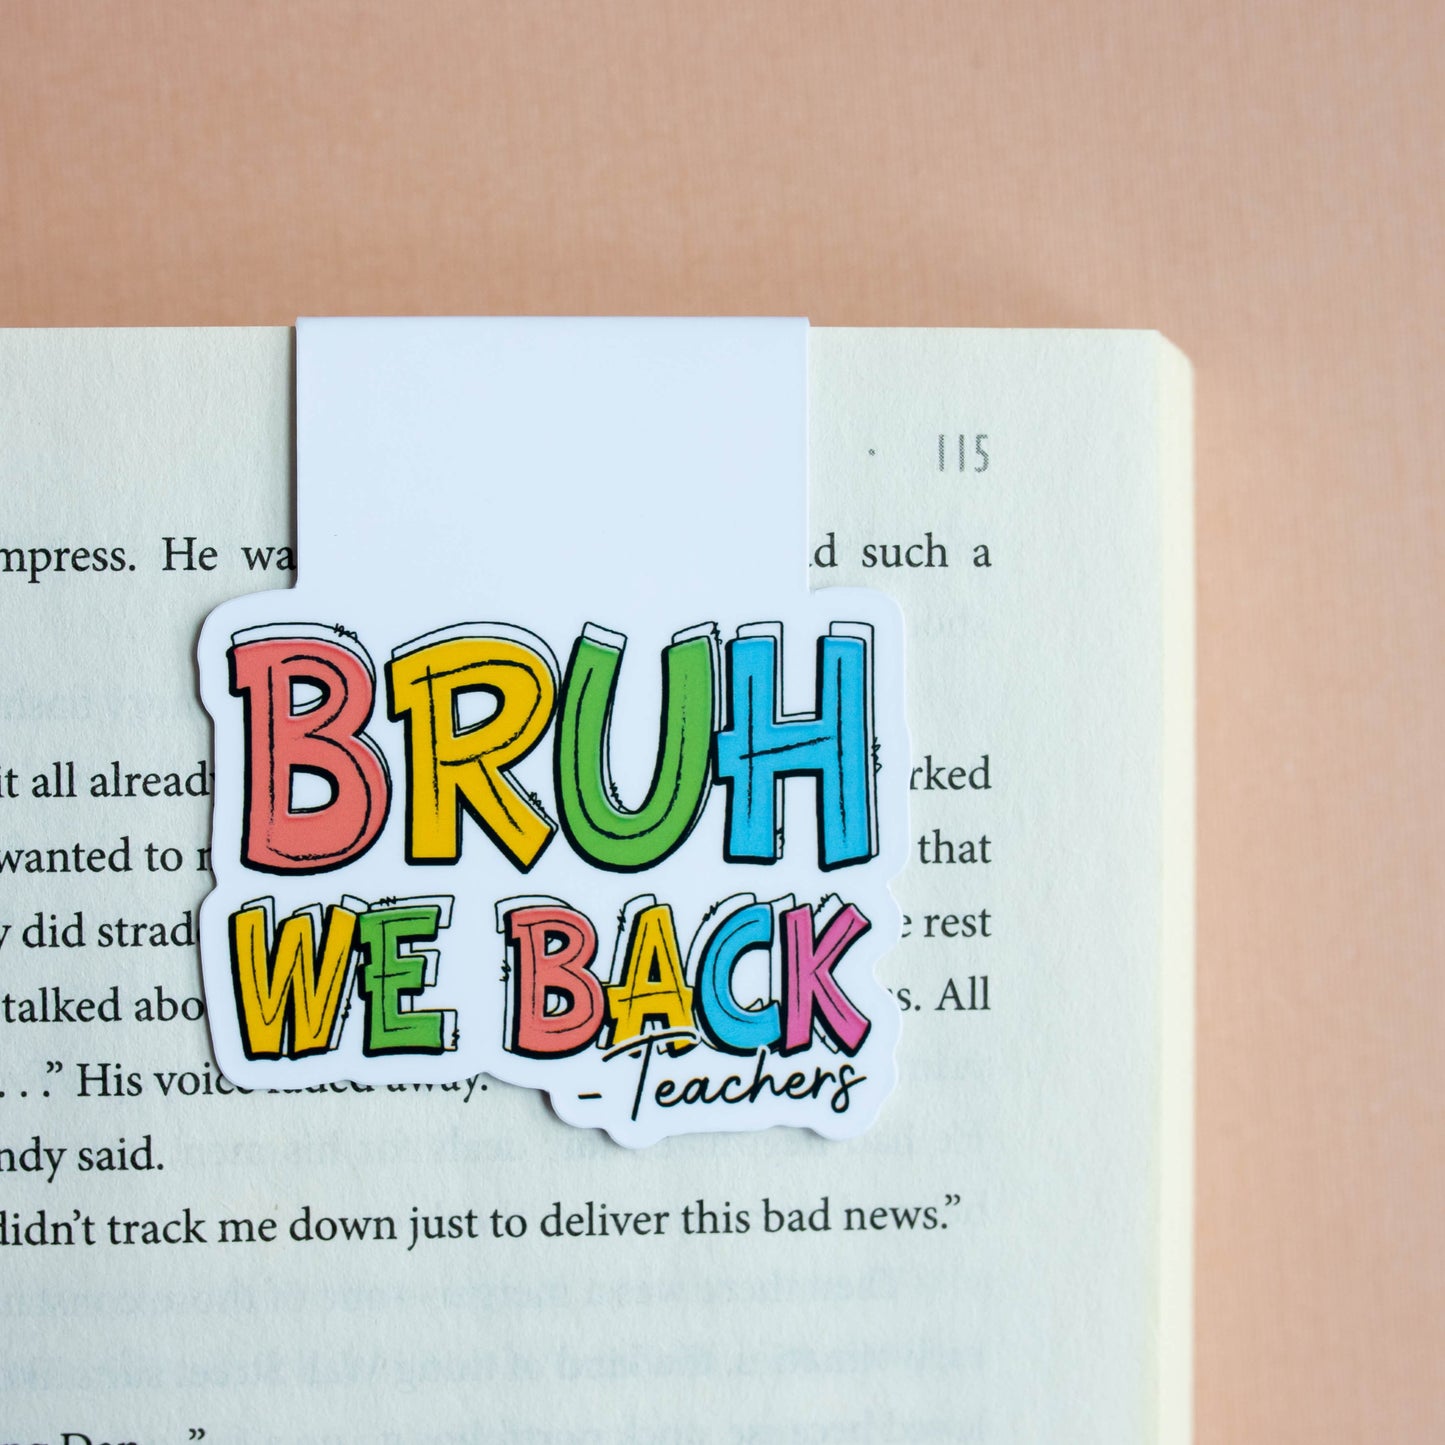 · 115
mpress. He wa d such a
BRUH
it all alread rked
wanted to that
y did strad e rest
WE BACK
talked abo s. All
- Teachers
. . .” His voice faded away.
ndy said.
didn’t track me down just to deliver this bad news.”